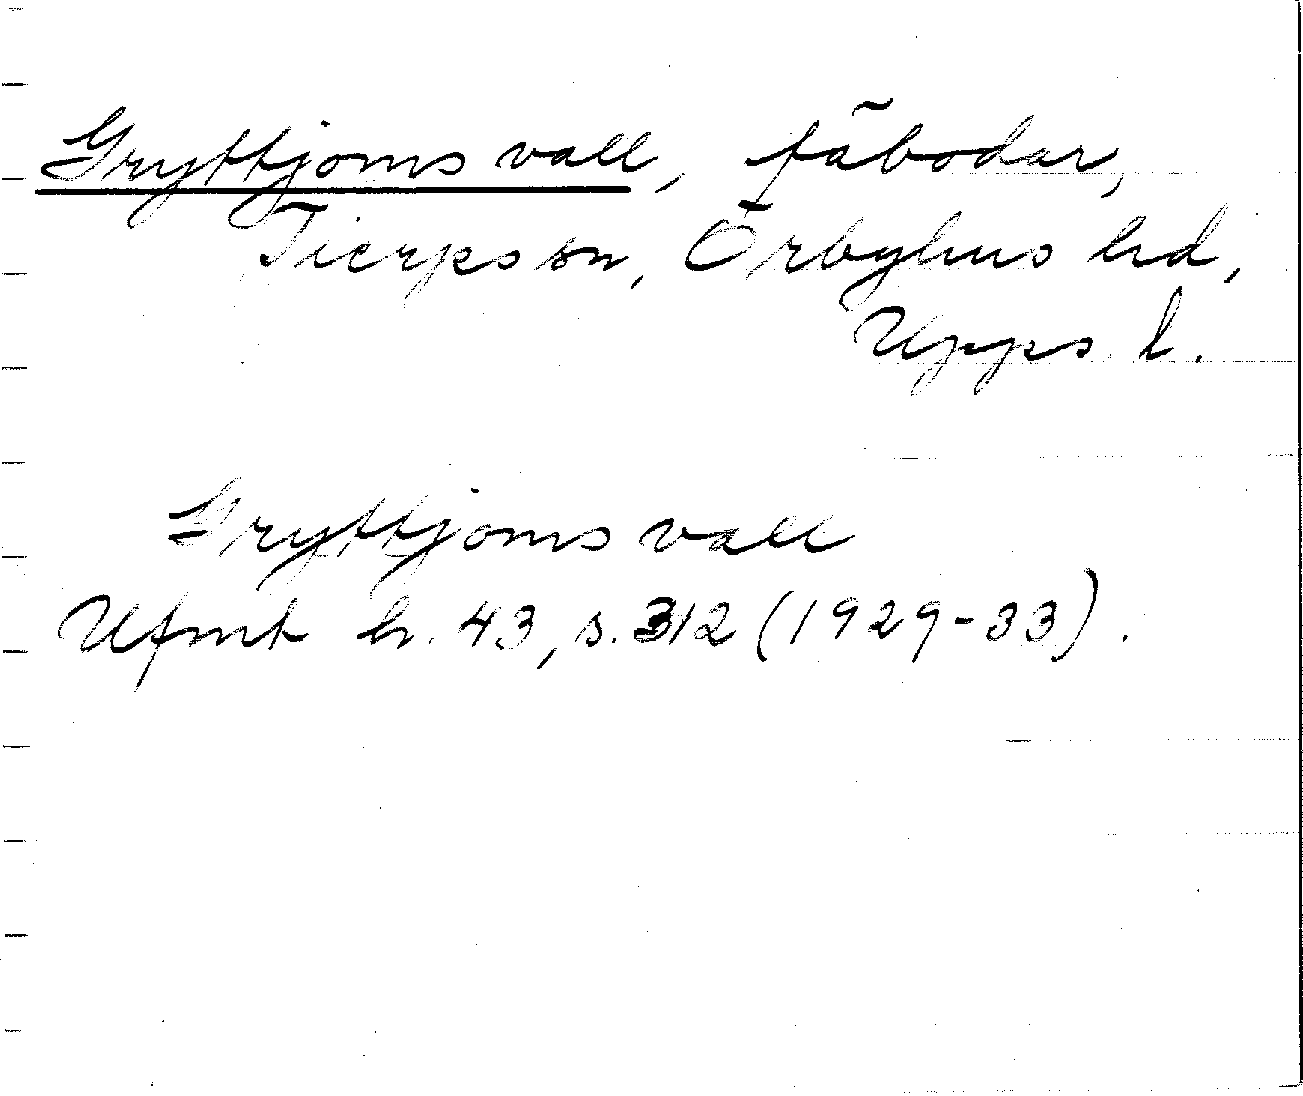 Gryttjoms vall, fäbodar,
Tierps sn, Örbyhus hd,
Upps. l.
Gryttjoms vall
Ufmt h. 43, s. 312 (1929-33).